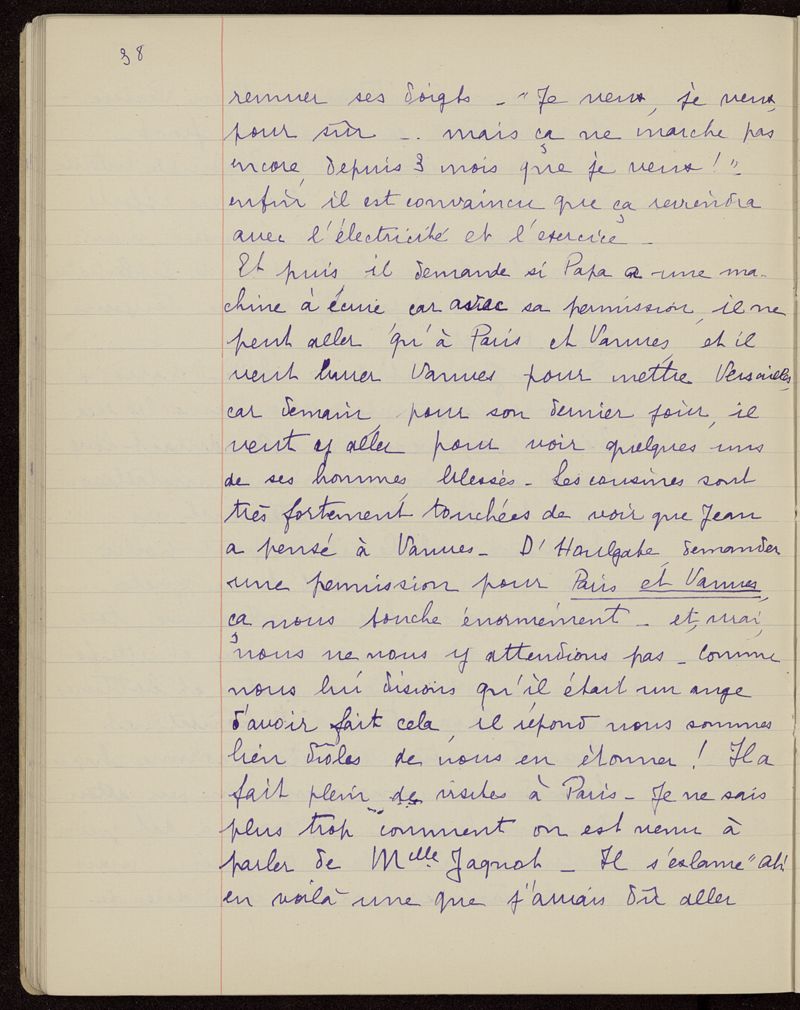 38
remuer ses doigts – "Je veux, je veux,
pour sûr – . mais ça ne marche pas
encore, depuis 3 mois que je veux ! ".
enfin il est convaincu que ça reviendra
avec l'électricité et l'exercice –
Et puis, il demande si Papa a une ma-
chine à écrire car avec sa permission, il ne
peut aller qu'à Paris et Vannes, et il
veut livrer Vannes pour mettre Versailles,
car demain, pour son dernier jour, il
veut y aller pour voir quelques uns
de ses hommes blessés – Les cousines sont
très fortement touchées de voir que Jean
a pensé à Vannes – D'Houlgate, demander
une permission pour Paris et Vannes,
ça nous touche énormément – et, vrai,
nous ne nous y attendions pas – Comme
nous lui disions qu'il était un ange
d'avoir fait cela, il répond nous sommes
bien drôles de nous en étonner ! Il a
fait plein de visites à Paris – Je ne sais
plus trop comment on est venu à
parler de Melle Jagnot – Il s'exlame "Ah
en voilà une que j'aurais dû aller